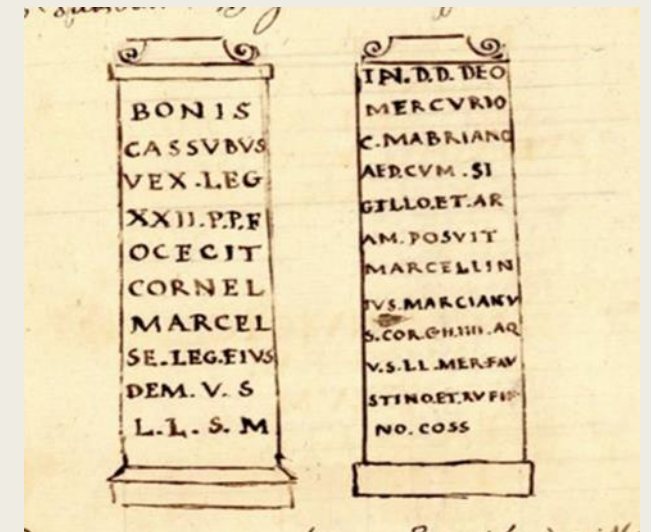 BONIS
CASSVBVS
VEX.LEG
XXII.P.P.F
OCECIT
CORNEL
MARCEL
SE.LEG.EIVS
DEM.V.S
L.L.S.M
IN.D.D.DEO
MERCVRIO
C.MABRIANO
AED.CVM.SI
GILLO.ET.AR
AM.POSVIT
MARCELLIN
IVS.MARCIANV
S.COR.GH.IIII.AQ
V.S.LL.MER.FAV
STINO.ET.RVFI
NO.COSS